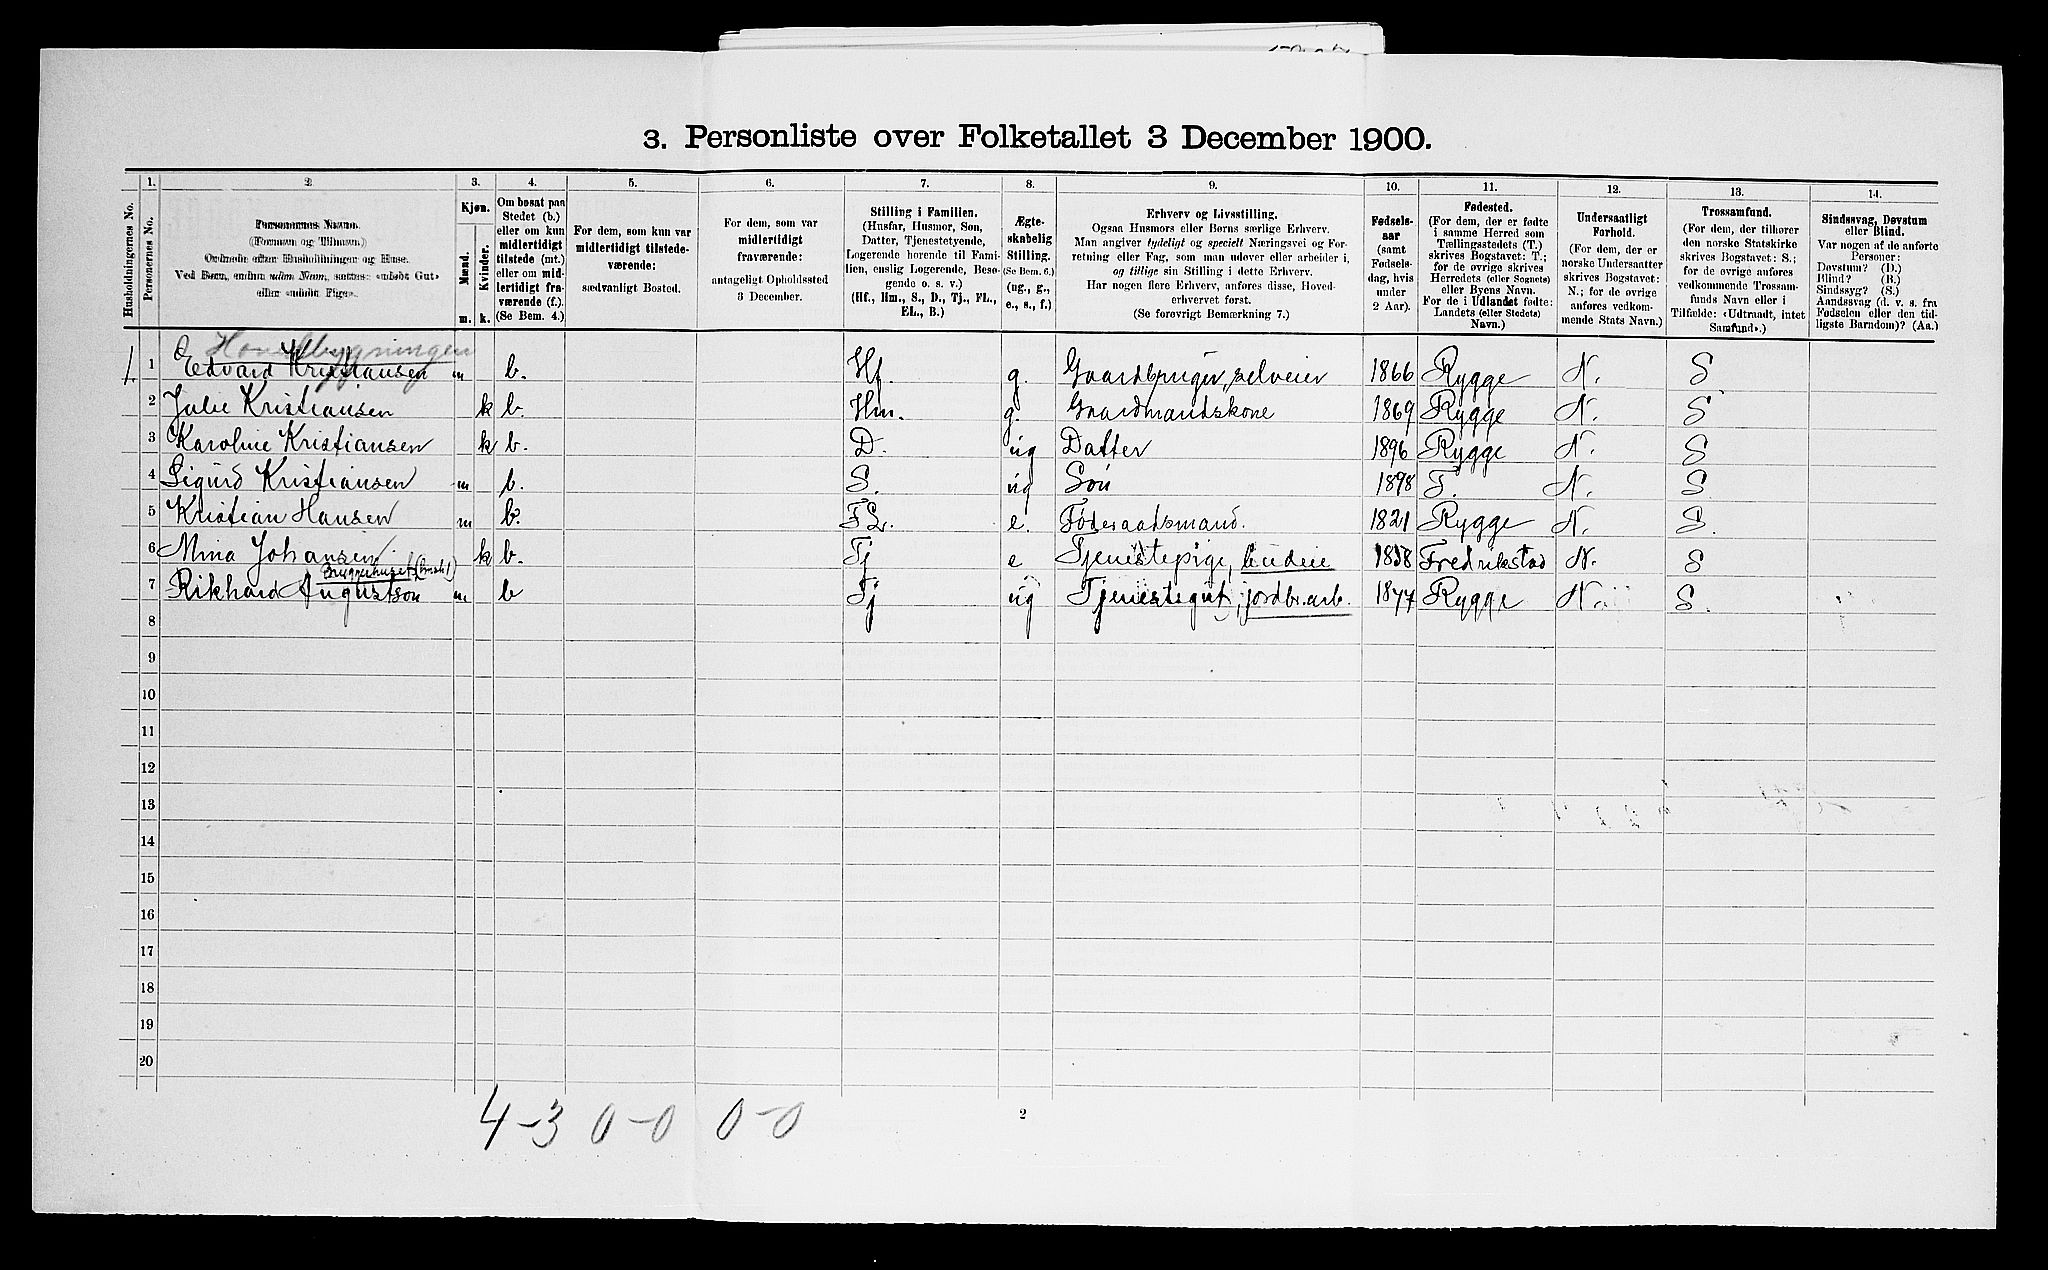 3. Personliste over Folketallet 3 December 1900.
1. 2 3. 4. 5. 6. 7. 8. 9. 10. 11. 12. 13. 14.
Husholdningernes No.
Personernes No.
Personernes Navne.
(Fornavn og Tilnavn.)
Ordnede efter Husholdninger og Huse.
Ved Børn, endnu uden Navn, sættes: «udøbt Gut»
eller «udøbt Pige».
Kjøn.
Mænd.
Kvinder.
m. k.
Om bosat paa
Stedet (b.)
eller om kun
midlertidigt
tilstede (mt.)
eller om mid-
lertidigt fra-
værende (f.).
(Se Bem. 4.)
For dem, som kun var
midlertidigt tilstede-
værende:
sædvanligt Bosted.
For dem, som var
midlertidigt
fraværende:
antageligt Opholdssted
3 December.
Stilling i Familien.
(Husfar, Husmor, Søn,
Datter, Tjenestetyende,
Logerende hørende til Fami-
lien, enslig Logerende, Besø-
gende o. s. v.)
(Hf., Hm., S., D., Tj., FL.,
EL., B.)
Ægte-
skabelig
Stilling.
(Se Bem. 6.)
(ug., g.,
e., s., f.)
Erhverv og Livsstilling.
Ogsaa Husmors eller Børns særlige Erhverv.
Man angiver tydeligt og specielt Næringsvei og For-
retning eller Fag, som man udøver eller arbeider i,
og tillige sin Stilling i dette Erhverv.
Har nogen flere Erhverv, anføres disse, Hoved-
erhvervet først.
(Se forøvrigt Bemærkning 7.)
Fødsels-
aar
(samt
Fødsels-
dag, hvis
under
2 Aar).
Fødested.
(For dem, der er fødte
i samme Herred som
Tællingsstedets (T.)
skrives Bogstavet: T.;
for de øvrige skrives
Herredets (eller Sognets)
eller Byens Navn.
For de i Udlandet fødte:
Landets (eller Stedets)
Navn.)
Undersaatligt
Forhold.
(For dem, der er
norske Undersaatter
skrives Bogstavet:
N.; for de øvrige
anføres vedkom-
mende Stats Navn.)
Trossamfund.
(For dem, der tilhører
den norske Statskirke
skrives Bogstavet: S.;
for de øvrige anføres
vedkommende Trossam-
funds Navn eller i
Tilfælde: «Udtraadt, intet
Samfund».)
Sindssvag, Døvstum
eller Blind.
Var nogen af de anførte
Personer:
Døvstum? (D.)
Blind? (B.)
Sindssyg? (S.)
Aandssvag (d. v. s. fra
Fødselen eller den tid-
ligste Barndom)? (Aa.)
Hovedbygningen
1. 1 Edvard Kristiansen m b. Hf. g. Gaardbruger, selveier 1866 Rygge N. S
2 Julie Kristiansen k b. Hm. g. Gaardmandskone 1869 Rygge N. S
3 Karoline Kristiansen k b. D. ug Datter 1896 Rygge N. S
4 Sigurd Kristiansen m b. S. ug Søn 1898 T. N. S
5 Kristian Hansen m b. FL. e. Føderaadsmand. 1821 Rygge N. S.
6 Mina Johansen k b. Tj e Tjenestepige, budeie 1858 Fredrikstad N. S
Bryggerhuset
7 Rikhard Augustson m b Tj ug Tjenestegut, jordbr.arb. 1877 Rygge N. S.
8
9
10
11
12
13
14
15
16
17
18
19
20
4-3 0-0 0-0
2